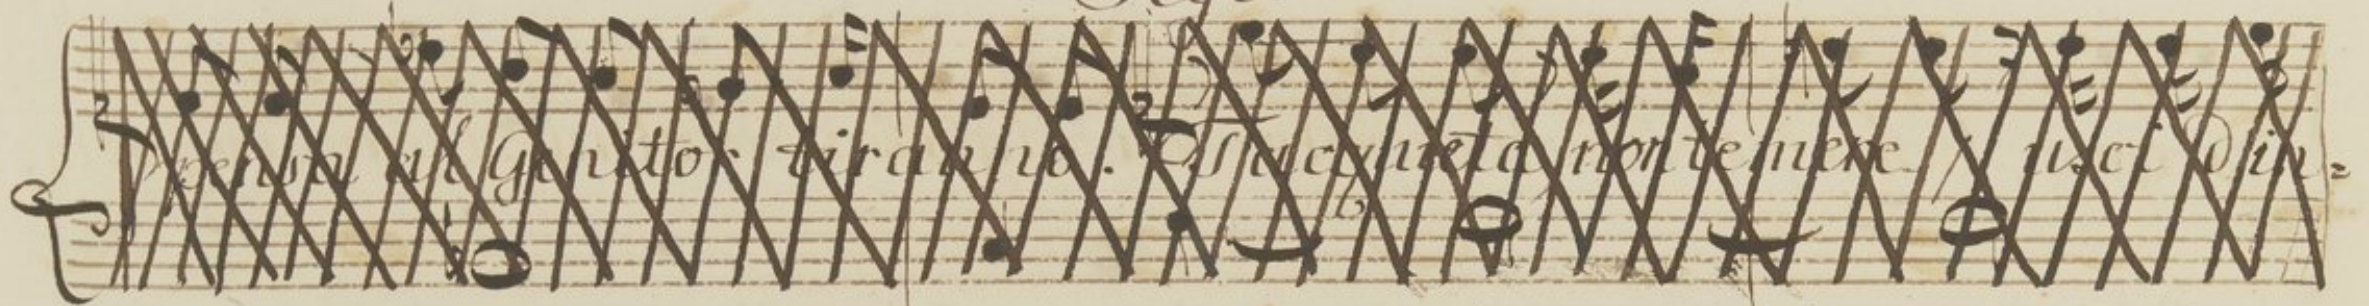 Pensa al Genitor tiranno. Sta cquieta non temere / usci d'in=